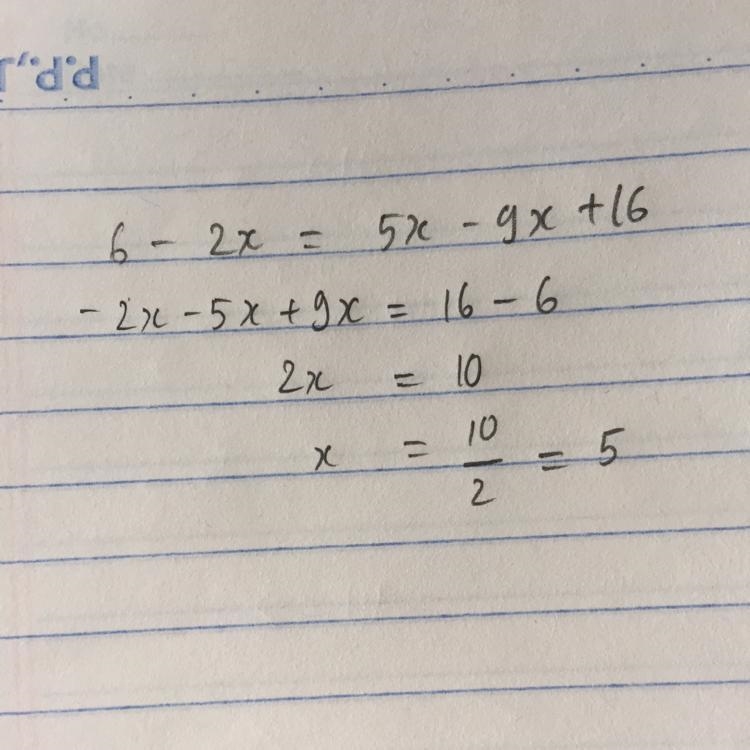 P.P.J
6 - 2x = 5x - 9x + 16
-2x - 5x + 9x = 16 - 6
2x = 10
x = 10/2 = 5